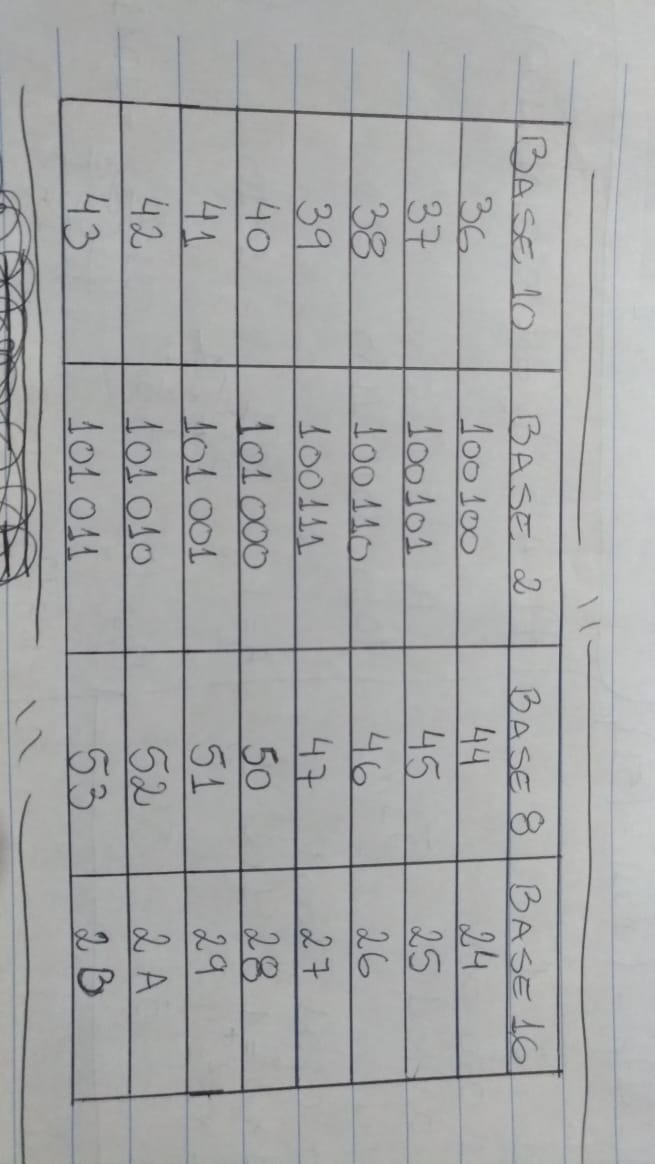 BASE 10 BASE 2 BASE 8 BASE 16
36 100100 44 24
37 100101 45 25
38 100110 46 26
39 100111 47 27
40 101000 50 28
41 101001 51 29
42 101010 52 2A
43 101011 53 2B